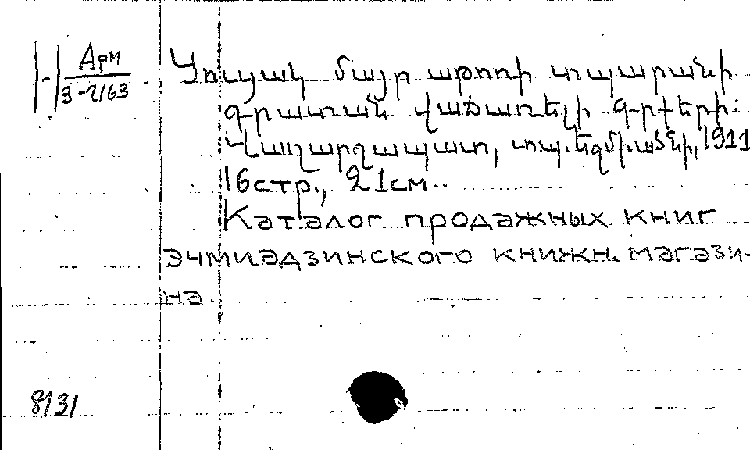 Арм
3-2163
Ցուցակ մայր աթոռի տպարանի
գրատան վաճառելի գրքերի:
Վաղարշապատ, տպ. Էջմիածնի, 1911
16стр., 21см.
Каталог продажных книг
эчмиадзинского книжн. магази-
на
8131